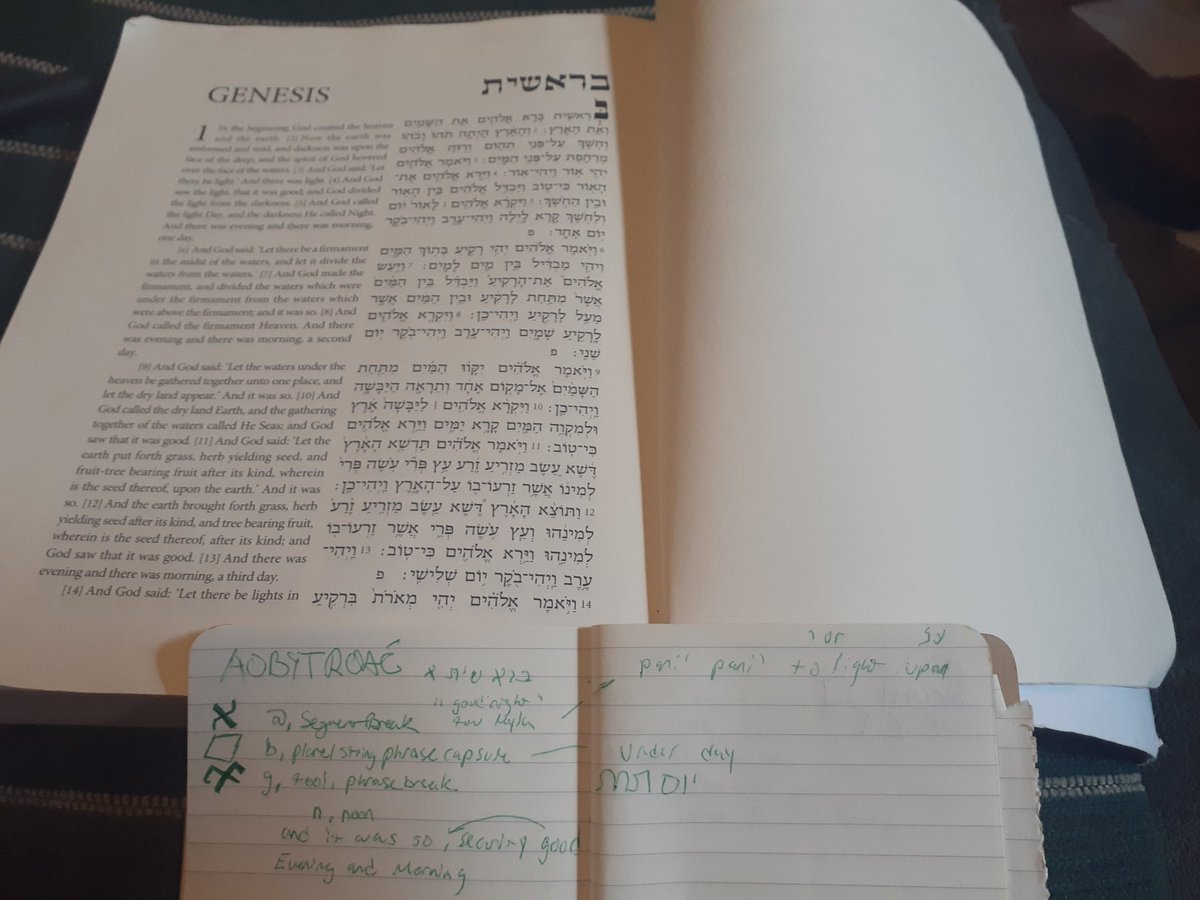 GENESIS
1 In the beginning God created the heaven
and the earth. [2] Now the earth was
unformed and void, and darkness was upon the
face of the deep; and the spirit of God hovered
over the face of the waters. [3] And God said: 'Let
there be light.' And there was light. [4] And God
saw the light, that it was good; and God divided
the light from the darkness. [5] And God called
the light Day, and the darkness He called Night.
And there was evening and there was morning,
one day.
[6] And God said: 'Let there be a firmament
in the midst of the waters, and let it divide the
waters from the waters.' [7] And God made the
firmament, and divided the waters which were
under the firmament from the waters which
were above the firmament; and it was so. [8] And
God called the firmament Heaven. And there
was evening and there was morning, a second
day.
[9] And God said: 'Let the waters under the
heaven be gathered together unto one place, and
let the dry land appear.' And it was so. [10] And
God called the dry land Earth, and the gathering
together of the waters called He Seas; and God
saw that it was good. [11] And God said: 'Let the
earth put forth grass, herb yielding seed, and
fruit-tree bearing fruit after its kind, wherein
is the seed thereof, upon the earth.' And it was
so. [12] And the earth brought forth grass, herb
yielding seed after its kind, and tree bearing fruit,
wherein is the seed thereof, after its kind; and
God saw that it was good. [13] And there was
evening and there was morning, a third day.
[14] And God said: 'Let there be lights in
בראשית
בְּרֵאשִׁית בָּרָא אֱלֹהִים אֵת הַשָּׁמַיִם
וְאֵת הָאָרֶץ: 2 וְהָאָרֶץ הָיְתָה תֹהוּ וָבֹהוּ
וְחֹשֶׁךְ עַל־פְּנֵי תְהוֹם וְרוּחַ אֱלֹהִים
מְרַחֶפֶת עַל־פְּנֵי הַמָּיִם: 3 וַיֹּאמֶר אֱלֹהִים
יְהִי אוֹר וַיְהִי־אוֹר: 4 וַיַּרְא אֱלֹהִים אֶת־
הָאוֹר כִּי־טוֹב וַיַּבְדֵּל אֱלֹהִים בֵּין הָאוֹר
וּבֵין הַחֹשֶׁךְ: 5 וַיִּקְרָא אֱלֹהִים ׀ לָאוֹר יוֹם
וְלַחֹשֶׁךְ קָרָא לָיְלָה וַיְהִי־עֶרֶב וַיְהִי־בֹקֶר
יוֹם אֶחָד: פ
6 וַיֹּאמֶר אֱלֹהִים יְהִי רָקִיעַ בְּתוֹךְ הַמָּיִם
וִיהִי מַבְדִּיל בֵּין מַיִם לָמָיִם: 7 וַיַּעַשׂ
אֱלֹהִים אֶת־הָרָקִיעַ וַיַּבְדֵּל בֵּין הַמַּיִם
אֲשֶׁר מִתַּחַת לָרָקִיעַ וּבֵין הַמַּיִם אֲשֶׁר
מֵעַל לָרָקִיעַ וַיְהִי־כֵן: 8 וַיִּקְרָא אֱלֹהִים
לָרָקִיעַ שָׁמָיִם וַיְהִי־עֶרֶב וַיְהִי־בֹקֶר יוֹם
שֵׁנִי: פ
9 וַיֹּאמֶר אֱלֹהִים יִקָּווּ הַמַּיִם מִתַּחַת
הַשָּׁמַיִם אֶל־מָקוֹם אֶחָד וְתֵרָאֶה הַיַּבָּשָׁה
וַיְהִי־כֵן: 10 וַיִּקְרָא אֱלֹהִים ׀ לַיַּבָּשָׁה אֶרֶץ
וּלְמִקְוֵה הַמַּיִם קָרָא יַמִּים וַיַּרְא אֱלֹהִים
כִּי־טוֹב: 11 וַיֹּאמֶר אֱלֹהִים תַּדְשֵׁא הָאָרֶץ
דֶּשֶׁא עֵשֶׂב מַזְרִיעַ זֶרַע עֵץ פְּרִי עֹשֶׂה פְּרִי
לְמִינוֹ אֲשֶׁר זַרְעוֹ־בוֹ עַל־הָאָרֶץ וַיְהִי־כֵן:
12 וַתּוֹצֵא הָאָרֶץ דֶּשֶׁא עֵשֶׂב מַזְרִיעַ זֶרַע
לְמִינֵהוּ וְעֵץ עֹשֶׂה פְּרִי אֲשֶׁר זַרְעוֹ־בוֹ
לְמִינֵהוּ וַיַּרְא אֱלֹהִים כִּי־טוֹב: 13 וַיְהִי־
עֶרֶב וַיְהִי־בֹקֶר יוֹם שְׁלִישִׁי: פ
14 וַיֹּאמֶר אֱלֹהִים יְהִי מְאֹרֹת בִּרְקִיעַ
AOBYTROAĆ ברא שית א
"good night"
a, Segment Break for
b, plural string phrase capsule
g, tool, phrase break.
n, noon
and it was so, security good
Evening and Morning
pani' pani' to light upon
Under day